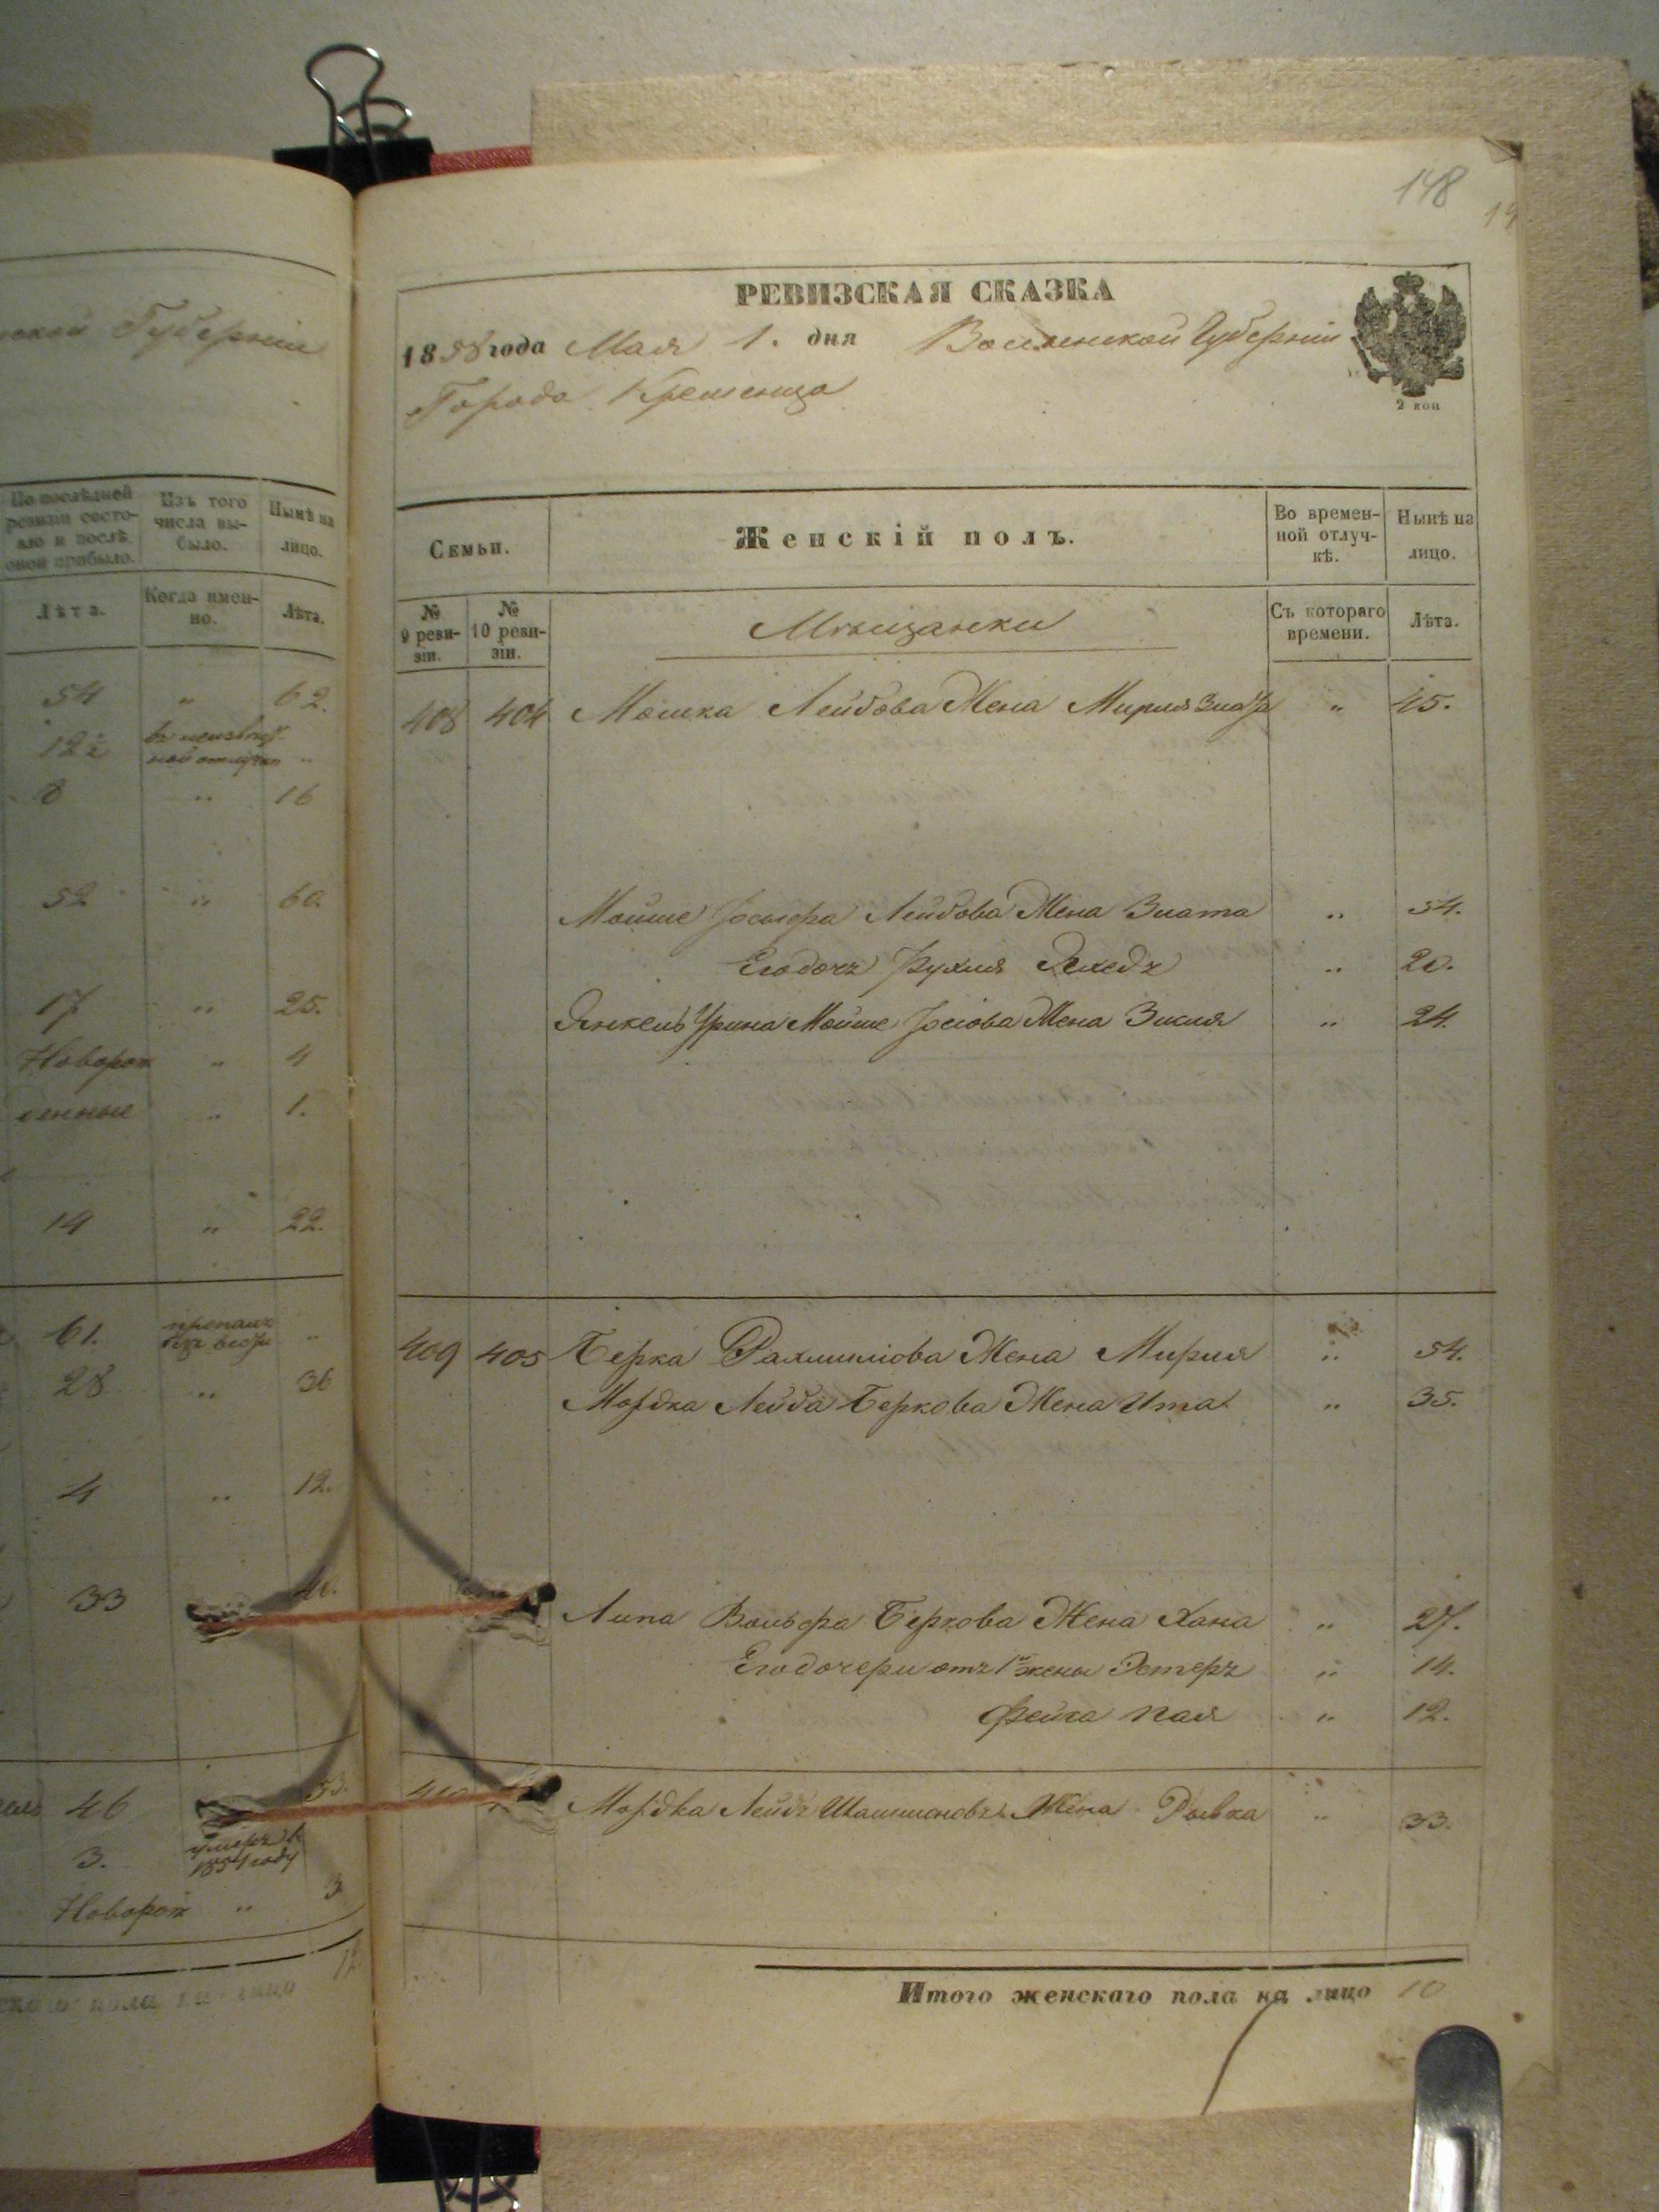 Губерніи
По послѣдней
ревизіи состо-
яло и послѣ
оной прибыло.
Изъ того
числа вы-
было.
Нынѣ на
лицо.
Лѣта.
Когда имен-
но.
Лѣта.
54 " 62.
12½
8 " 16
52 " 60.
17 " 25.
Новорож " 4
денные " 1.
14 " 22.
61. "
28 " 36
4 " 12.
33
46 53.
3. умеръ въ
1854 году
Новорож " 3
12
148
РЕВИЗСКАЯ СКАЗКА
1858 года Мая 1. дня Волынской Губерніи
2 коп
Города Кременца
Семьи.
Женскій полъ.
Во времен-
ной отлуч-
кѣ.
Нынѣ на
лицо.
№
9 реви-
зіи.
№
10 реви-
зіи.
Мѣщанки
Съ котораго
времени.
Лѣта.
408 404 Мошка Лейбова Жена Мирля " 45.
Мойше Іосьофа Лейбова Жена Злата " 54.
Егодочь Рухля " 20.
Янкель Мойше Іосіова Жена Зисля " 24.
409 405 Берка Жена Мирля " 54.
Мордка Лейба Беркова Жена Ита " 35.
Липа Вольфа Беркова Жена Хана " 27.
Егодочери отъ 1й жены Эстеръ " 14.
Фейга " 12.
Мордка Лейбъ Жена Рывка " 33.
Итого женскаго пола на лицо 10